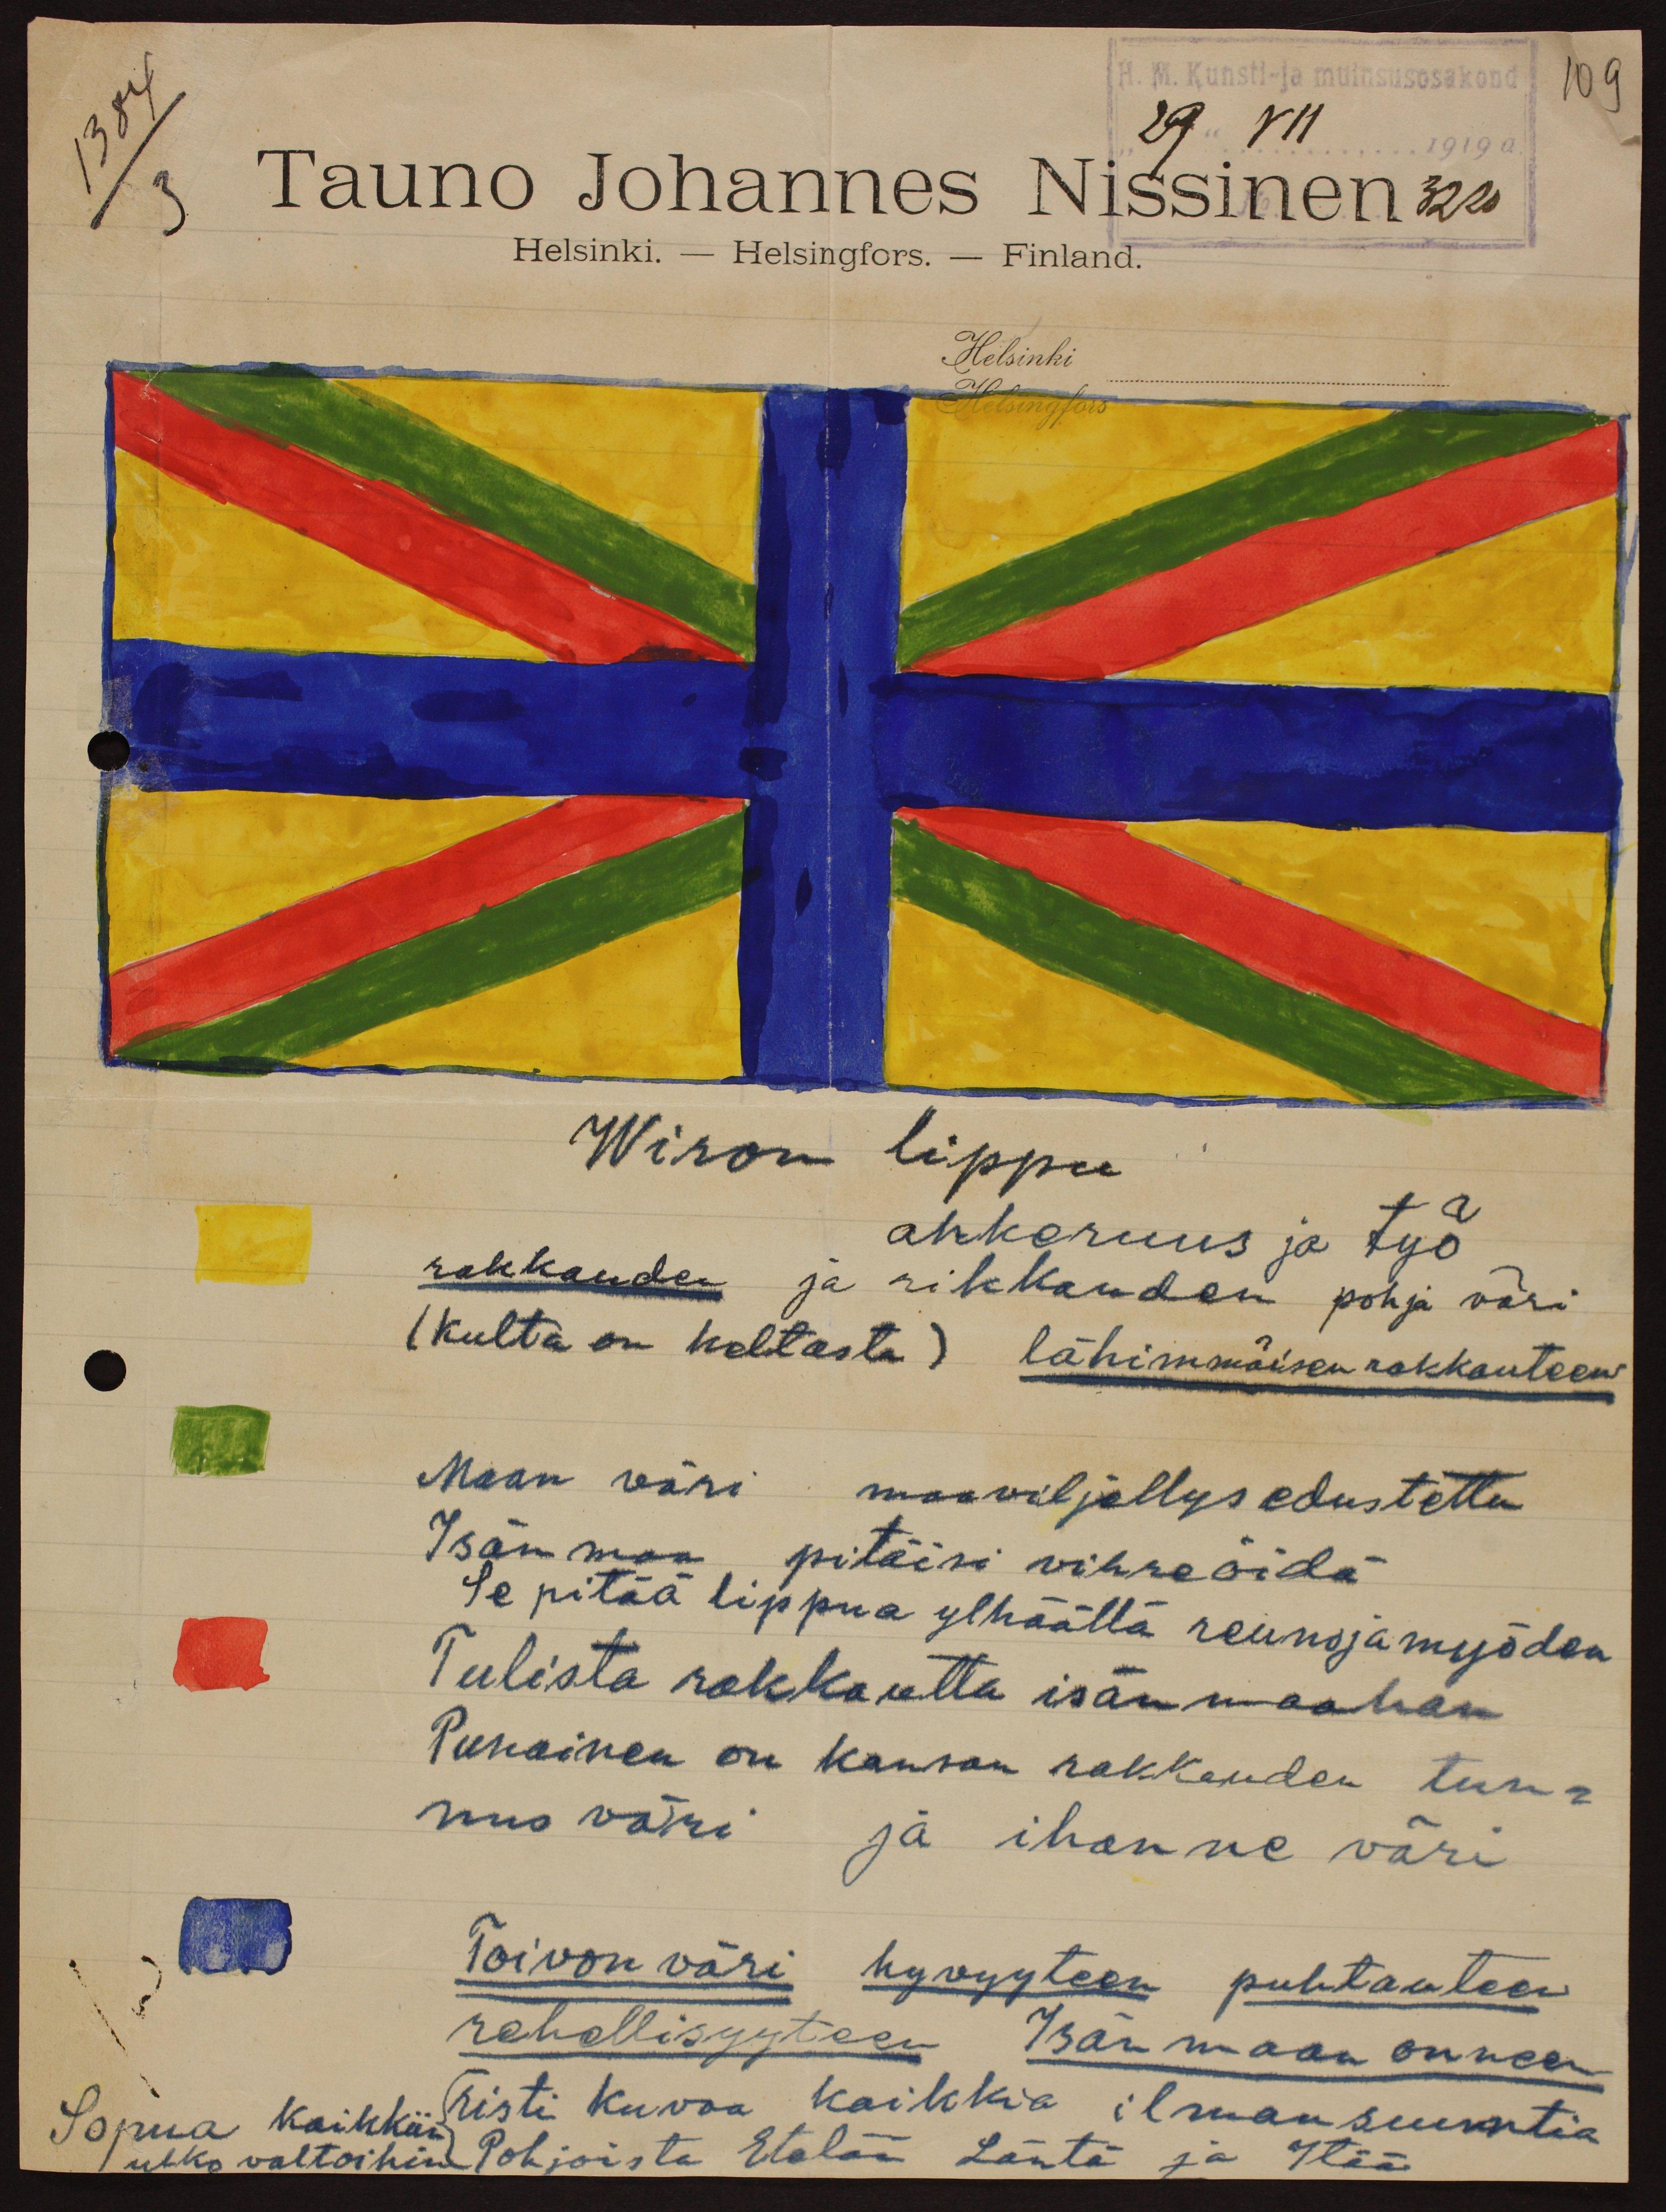 1384/3
H. M. Kunsti-ja muinsusosakond
109
"29" VII 1919 a.
3220
Tauno Johannes Nissinen
Helsinki. — Helsingfors. — Finland.
Helsinki
Helsingfors
Wiron lippu
ahkeruus ja työ
rakkauden ja rikkauden pohja väri
(kulta on keltasta) lähimmäisen rakkauteen
Maan väri maaviljellys edustettu
Isän maa pitäisi vihreöidä
Se pitää lippua ylhäällä reunoja myöden
Tulista rakkautta isän maahan
Punainen on kansan rakkauden tun=
nus väri ja ihanne väri
Toivon väri hyvyyteen puhtauteen
rehellisyyteen Isän maan onneen
Risti kuvaa kaikkia ilman suuntia
Pohjoista Etelää Läntä ja Itää
Sopua kaikkiin
ulko valtoihin